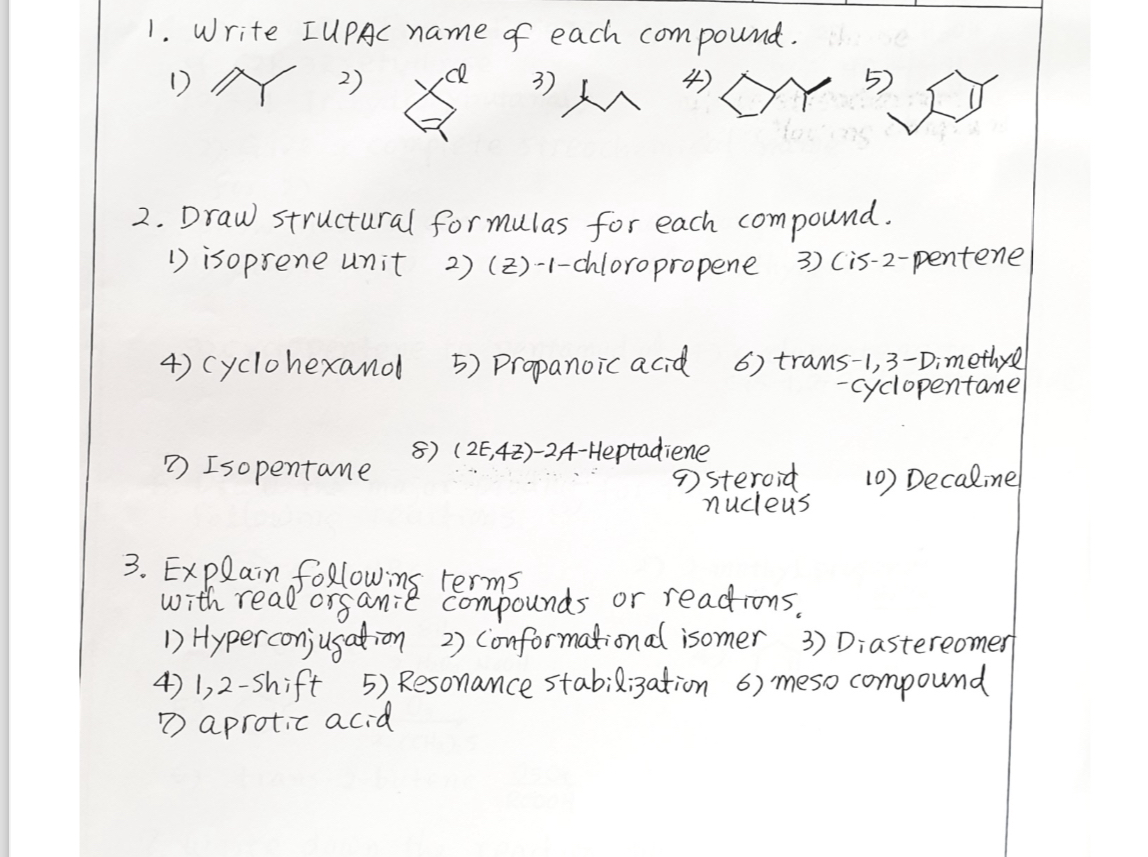 1. Write IUPAC name of each compound.
1) 2) Cl 3) 4) 5)
2. Draw structural formulas for each compound.
1) isoprene unit 2) (Z)-1-chloropropene 3) Cis-2-pentene
4) cyclohexanol 5) Propanoic acid 6) trans-1,3-Dimethyl
-cyclopentane
7) Isopentane 8) (2E,4Z)-2,4-Heptadiene
9) steroid
nucleus 10) Decaline
3. Explain following terms
with real organic compounds or reactions.
1) Hyperconjugation 2) Conformational isomer 3) Diastereomer
4) 1,2-Shift 5) Resonance stabilization 6) meso compound
7) aprotic acid